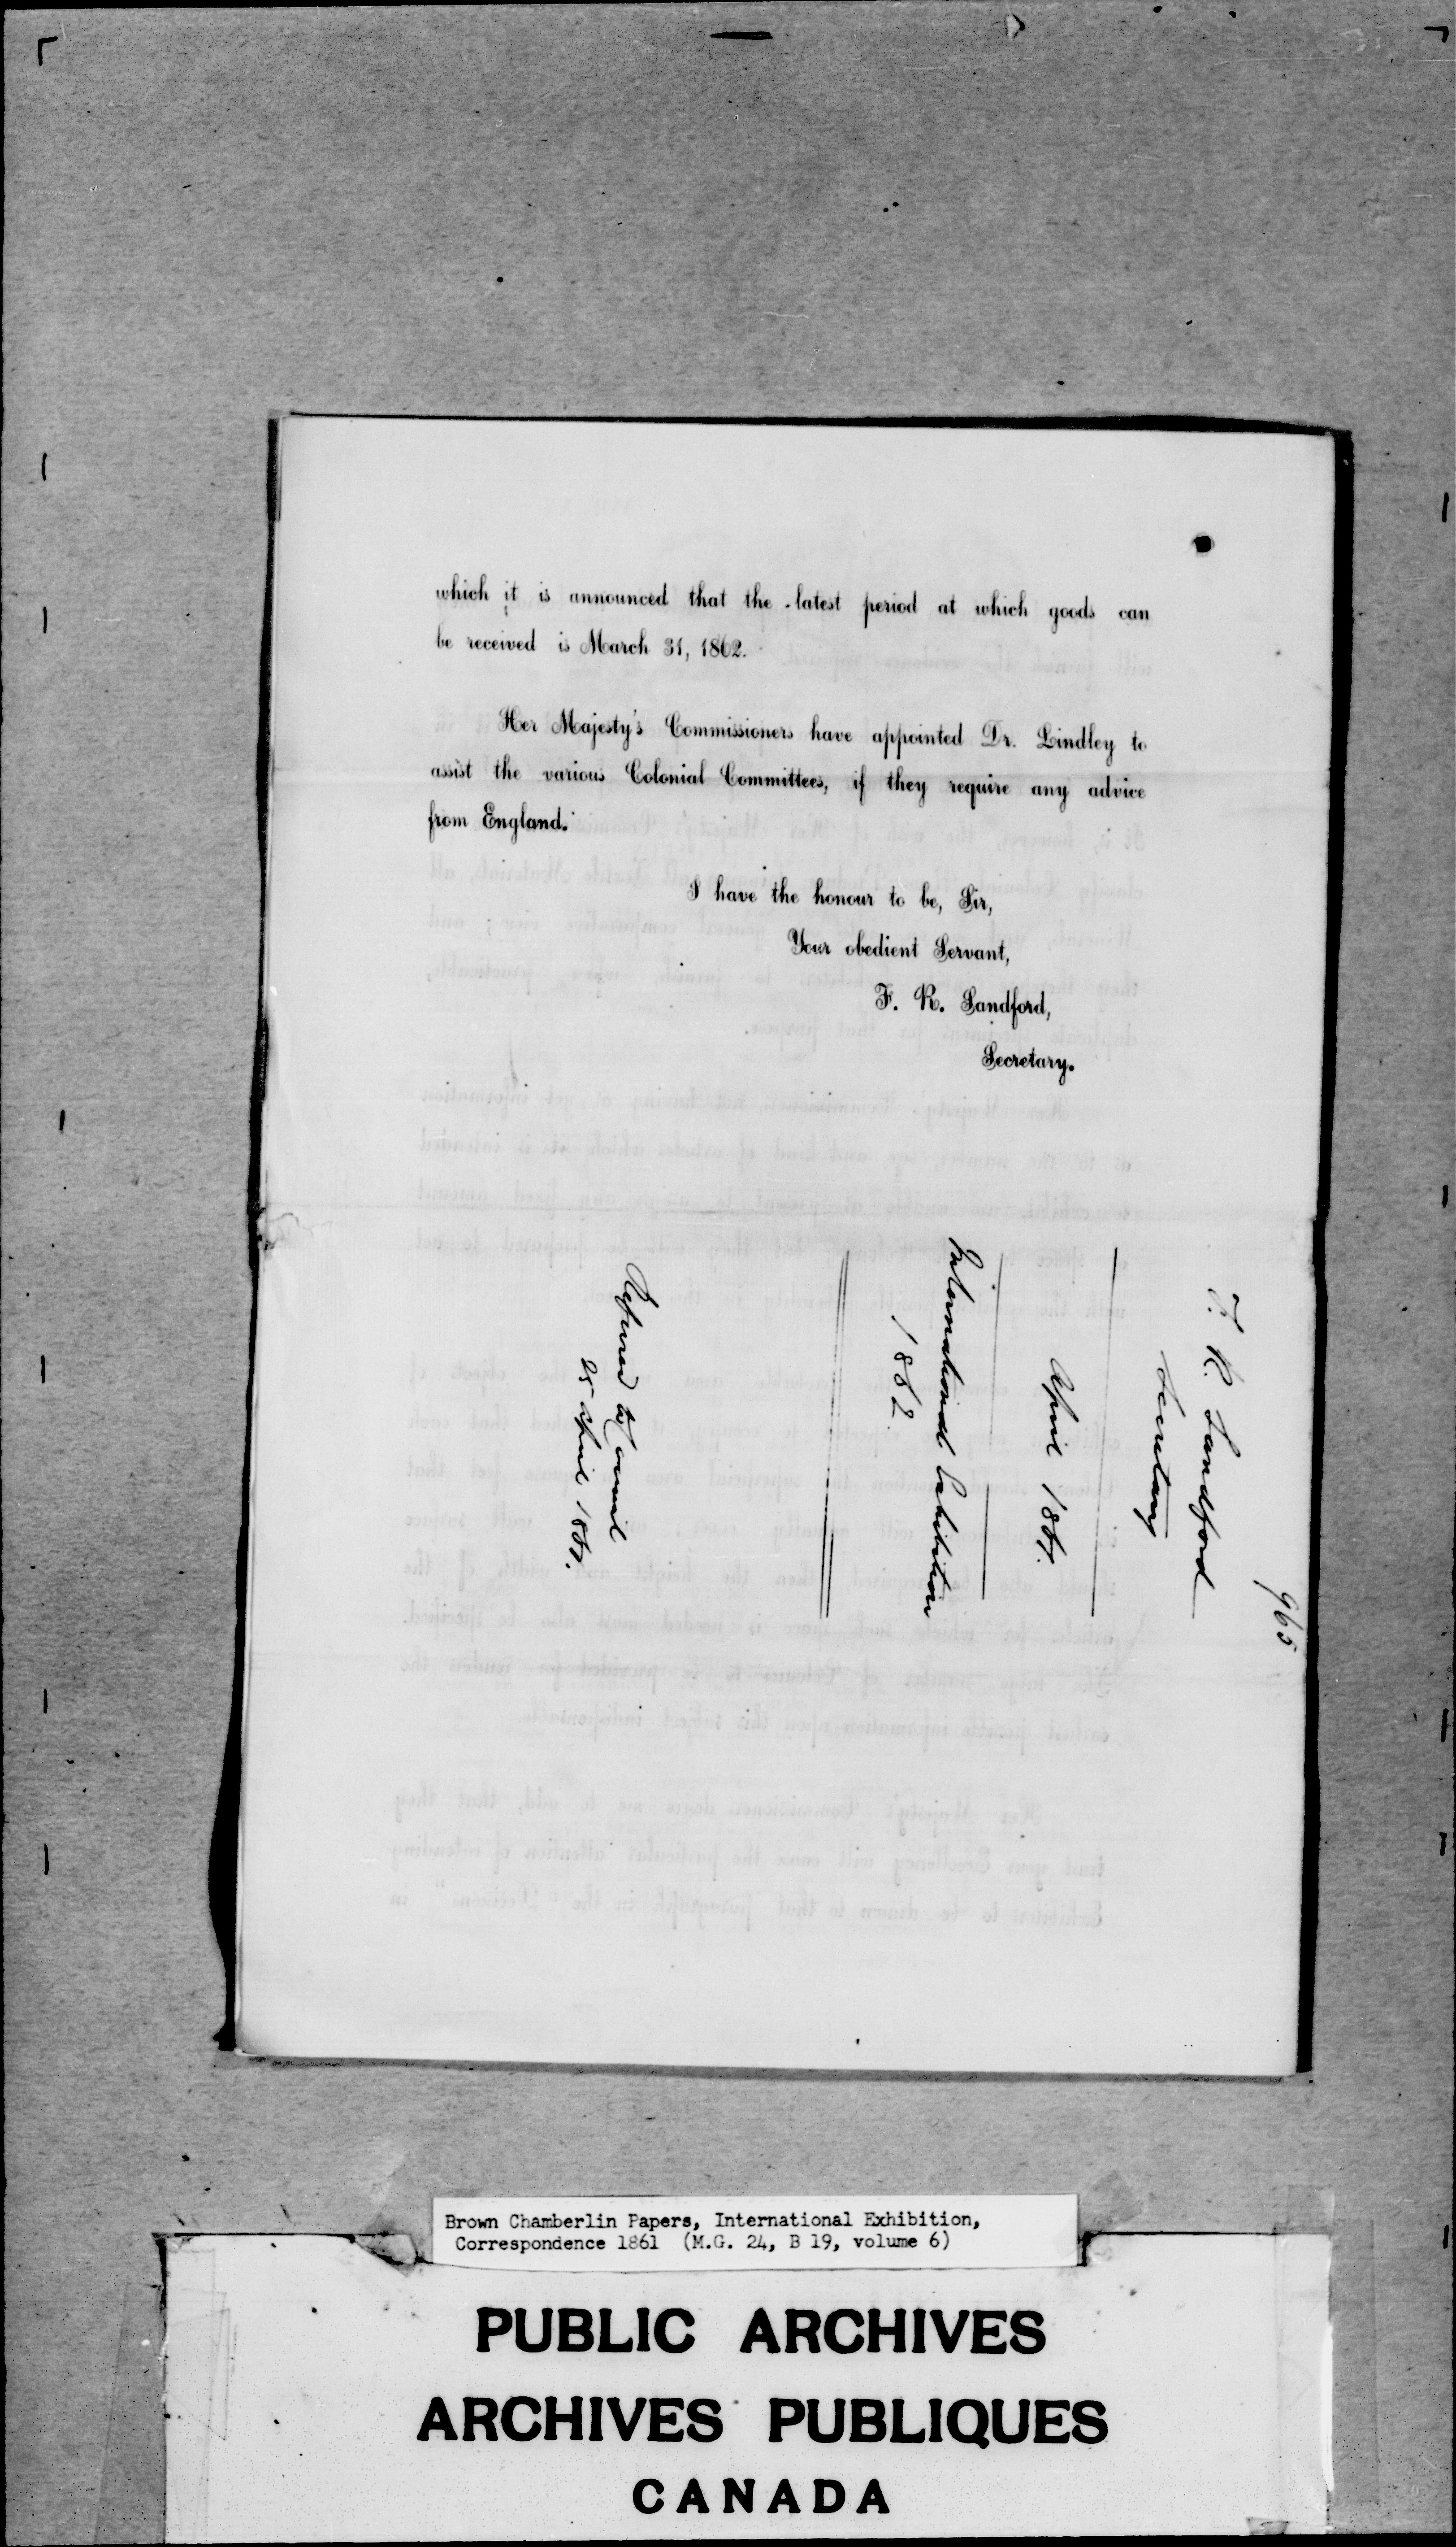 which it is announced that the latest period at which goods can
be received is March 31, 1862.
Her Majesty's Commissioners have appointed Dr. Lindley to
assist the various Colonial Committees, if they require any advice
from England.
I have the honour to be, Sir,
Your obedient Servant,
F. R. Sandford,
Secretary.
965
F. R. Sandford
Secretary
April 1861.
International Exhibition
1862
Referred to Council
25 April 1861.
Brown Chamberlin Papers, International Exhibition,
Correspondence 1861 (M.G. 24, B 19, volume 6)
PUBLIC ARCHIVES
ARCHIVES PUBLIQUES
CANADA